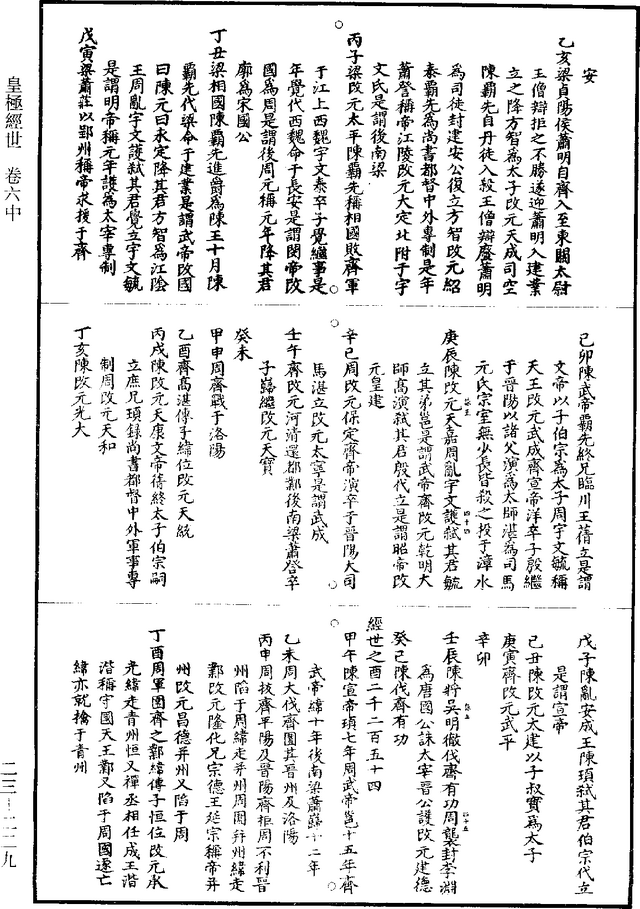 皇極經世 卷六中
二三—二二九
安
乙亥梁貞陽侯蕭明自齊入至東關太尉
王僧辯拒之不勝遂迎蕭明入建業
立之降方智為太子改元天成司空
陳霸先自丹徒入殺王僧辯廢蕭明
為司徒封建安公復立方智改元紹
泰霸先為尚書都督中外專制是年
蕭詧稱帝江陵改元大定北附于宇
文氏是謂後南梁
丙子梁改元太平陳霸先稱相國敗齊軍
于江上西魏宇文泰卒子覺繼事是
年覺代西魏命于長安是謂閔帝改
國為周是謂後周元稱元年降其君
廓為宋國公
丁丑梁相國陳霸先進爵為陳王十月陳
霸先代梁命于建業是謂武帝改國
曰陳元曰永定降其君方智為江陰
王周亂宇文護弒其君覺立宇文毓
是謂明帝稱元年護為太宰專制
戊寅梁蕭莊以郢州稱帝求援于齊
己卯陳武帝霸先終兄臨川王蒨立是謂
文帝以子伯宗為太子周宇文毓稱
天王改元武成齊宣帝洋卒子殷繼
于晉陽以諸父演為太師湛為司馬
元氏宗室無少長皆殺之投于漳水
庚辰陳改元天嘉周亂宇文護弒其君毓
立其弟邕是謂武帝齊改元乾明大
師高演弒其君殷代立是謂昭帝改
元皇建
辛巳周改元保定齊帝演卒于晉陽大司
馬湛立改元太寧是謂武成
壬午齊改元河清還都鄴後南梁蕭詧卒
子巋繼改元天寶
癸未
甲申周齊戰于洛陽
乙酉齊高湛傳子緯位改元天統
丙戌陳改元天康文帝蒨終太子伯宗嗣
立庶兄頊錄尚書都督中外軍事專
制周改元天和
丁亥陳改元光大
戊子陳亂安成王陳頊弒其君伯宗代立
是謂宣帝
己丑陳改元太建以子叔寶為太子
庚寅齊改元武平
辛卯
壬辰陳將吳明徹伐齊有功周襲封李淵
為唐國公誅太宰晉公護改元建德
癸巳陳伐齊有功
經世之酉二千二百五十四
甲午陳宣帝頊七年周武帝邕十五年齊
武帝緯十年後南梁蕭巋十二年
乙未周大伐齊圍其晉州及洛陽
丙申周拔齊平陽及晉陽齊拒周不利晉
州陷于周緯走并州周圍并州緯走
鄴改元隆化兄宗德王延宗稱帝并
州改元昌德并州又陷于周
丁酉周軍圍齊之鄴緯傳子恒位改元承
光緯走青州恒又禪丞相任成王湝
湝稱守國天王鄴又陷于周國遂亡
緯亦就擒于青州